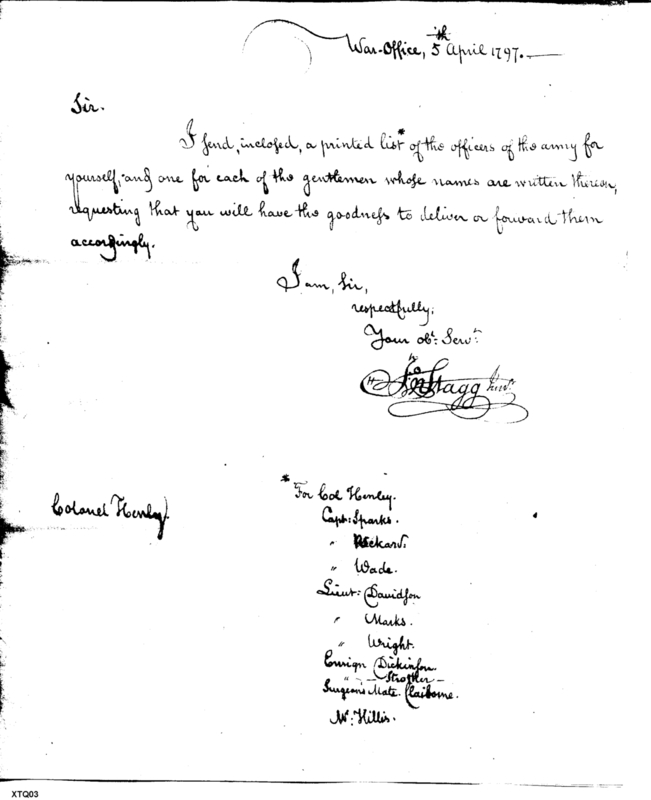 War-Office, 5th April 1797.
Sir.
I send, inclosed, a printed list* of the officers of the army for
yourself, and one for each of the gentlemen whose names are written thereon,
requesting that you will have the goodness to deliver or forward them
accordingly.
I am, Sir,
respectfully,
Your obt: Servt:
Jno Stagg Junr.
Colonel Henley.
* For Col Henley.
Capt: Sparks.
" Rickard.
" Wade.
Lieut: Davidson
" Marks.
" Wright.
Ensign Dickinson.
" Strother
Surgeon's Mate. Claiborne.
Mr: Hillis.
XTQ03